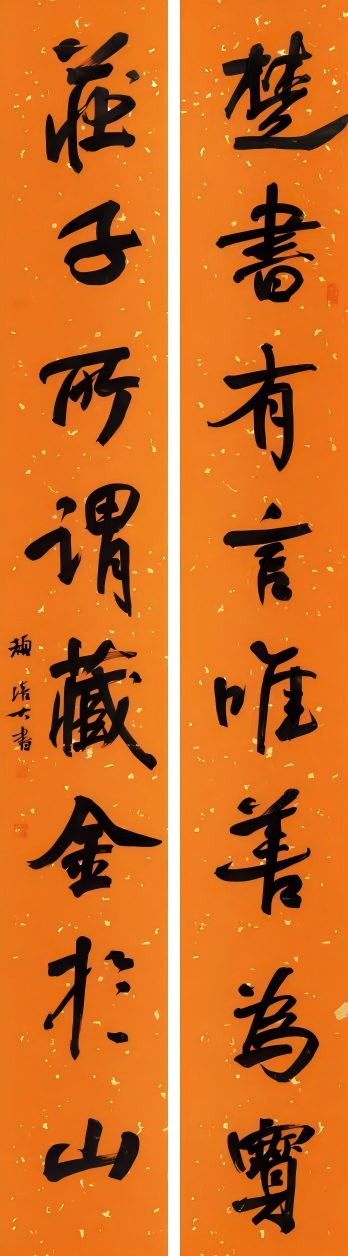 楚書有言唯善為寶
莊子所謂藏金於山